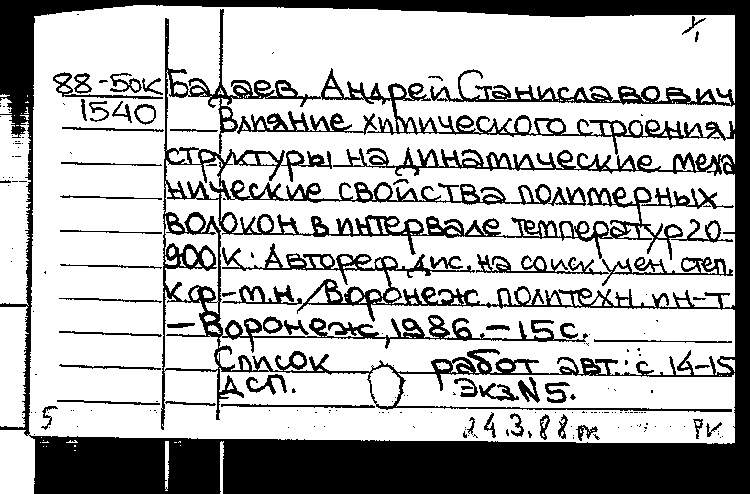 88-50к Бадаев, Андрей Станиславович
1540 Влияние химического строения и
структуры на динамические меха-
нические свойства полимерных
волокон в интервале температур 20-
900 К: Автореф. дис. на соиск. учен. степ.
к.ф-м.н. / Воронеж. политехн. ин-т.
— Воронеж, 1986. — 15 с.
Список работ авт.: с. 14-15
ДСП. Экз N 5.
5 24.3.88